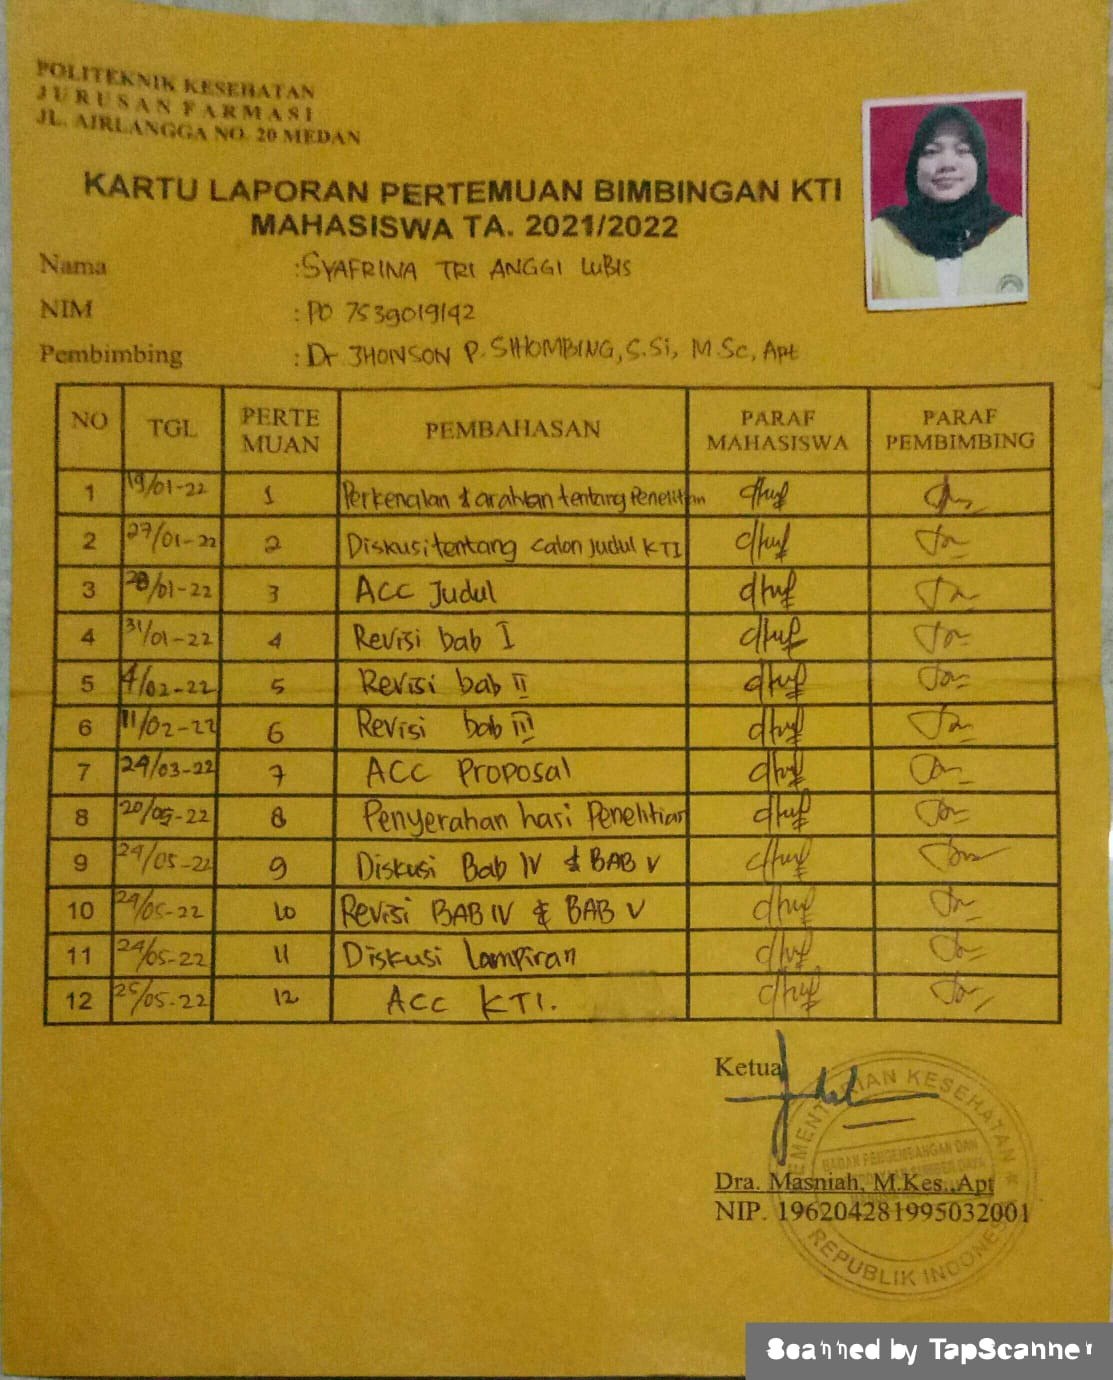 POLITEKNIK KESEHATAN
JURUSAN FARMASI
JL. AIRLANGGA NO. 20 MEDAN
KARTU LAPORAN PERTEMUAN BIMBINGAN KTI
MAHASISWA TA. 2021/2022
Nama : SYAFRINA TRI ANGGI LUBIS
NIM : PO 7539019142
Pembimbing : Dr. JHONSON P. SIHOMBING, S.Si, M.Sc, Apt
NO TGL PERTE MUAN PEMBAHASAN PARAF MAHASISWA PARAF PEMBIMBING
1 19/01-22 1 Perkenalan & arahan tentang Penelitian
2 27/01-22 2 Diskusi tentang calon judul KTI
3 28/01-22 3 ACC Judul
4 31/01-22 4 Revisi bab I
5 4/02-22 5 Revisi bab II
6 11/02-22 6 Revisi bab III
7 24/03-22 7 ACC Proposal
8 20/05-22 8 Penyerahan hasi Penelitian
9 24/05-22 9 Diskusi Bab IV & BAB V
10 24/05-22 10 Revisi BAB IV & BAB V
11 24/05-22 11 Diskusi Lampiran
12 25/05-22 12 ACC KTI.
Ketua
KEMENTERIAN KESEHATAN
BADAN PENGEMBANGAN DAN
Dra. Masniah, M.Kes.,Apt
NIP. 196204281995032001
REPUBLIK INDONESIA
Scanned by TapScanner